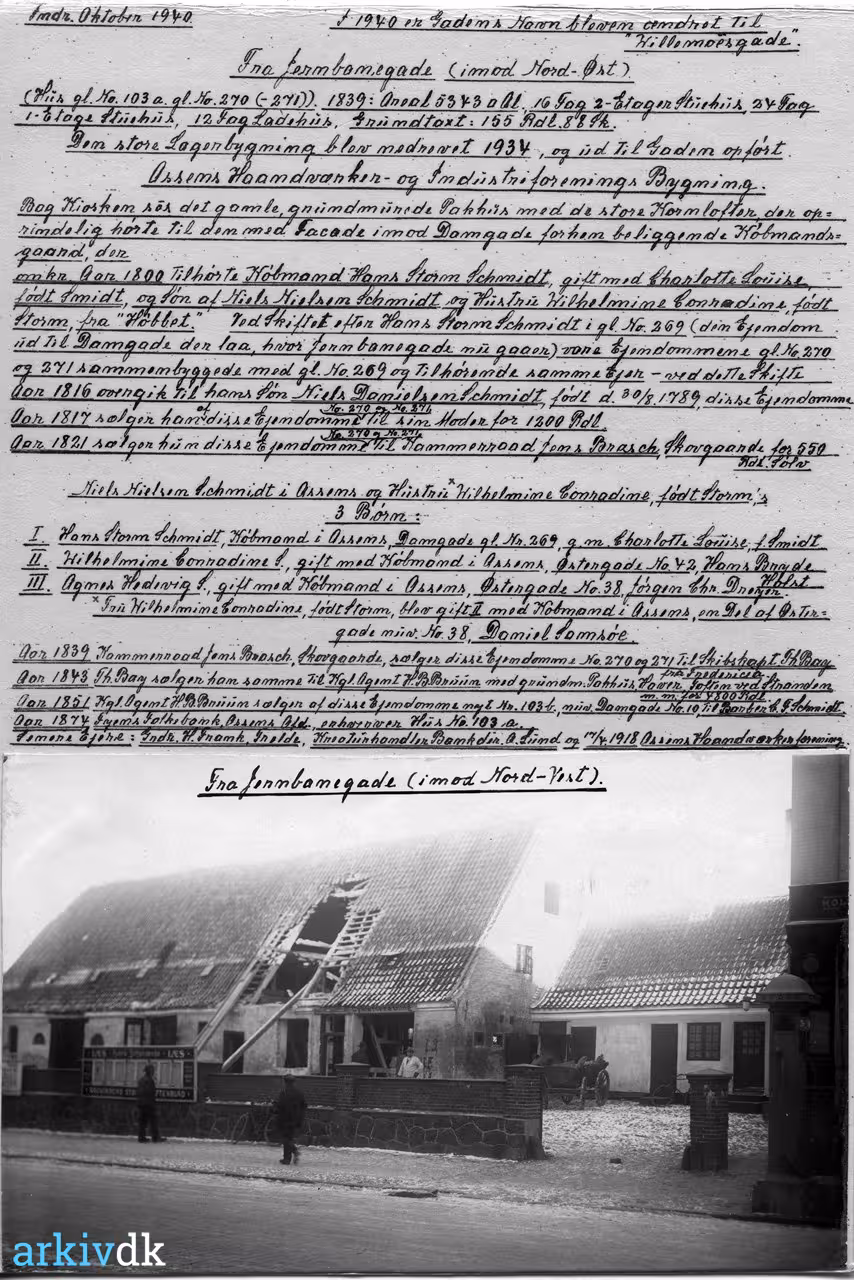 Indr. Oktober 1940.
I 1940 er Gadens Navn bleven ændret til
"Willemoësgade".
Fra Jernbanegade (imod Nord-Øst).
(Hüs gl. No. 103a. gl. No. 270 (-271)). 1839: Areal 5343 □ Al. 16 Fag 2-Etager Stüehüs, 24 Fag
1-Etage Stüehüs, 12 Fag Ladehüs, Gründtaxt: 155 Rdl. 88 Sk.
Den store Lagerbygning blev nedrevet 1934, og üd til Gaden opført
Assens Haandværker- og Indüstriforenings Bygning.
Bag Kiosken sës det gamle, gründmürede Pakhüs med de store Kornlofter, der op=
rindelig hørte til dem med Facade imod Damgade forhen beliggende Købmands=
gaard, der
omkr. Aar 1800 tilhørte Købmand Hans Storm Schmidt, gift med Charlotte Loüise,
født Smidt, og Søn af Niels Nielsen Schmidt og Hüstrü Wilhelmine Conradine, født
Storm, fra "Høbbet." Ved Skiftet efter Hans Storm Schmidt i gl. No. 269 (den Ejendom
üd til Damgade der laa, hvor Jernbanegade nü gaaer) vare Ejendommene gl. No. 270
og 271 sammenbyggede med gl. No. 269 og tilhørende samme Ejer - ved dette Skifte
Aar 1816 overgik til hans Søn Niels Danielsen Schmidt, født d. 30/8. 1789, disse Ejendomme
No. 270 og No. 271
Aar 1817 sælger han af disse Ejendomme til sin Moder for 1200 Rdl.
No. 270 og No. 271
Aar 1821 sælger hün disse Ejendomme til Kammerraad Jens Brasch, Skovgaarde for 550
Rdl. Sølv
Niels Nielsen Schmidt i Assens og Hüstrü x Wilhelmine Conradine, født Storm's
3 Børn:
I. Hans Storm Schmidt, Købmand i Assens, Damgade gl. Nr. 269, g. m. Charlotte Loüise, f. Smidt
II. Wilhelmine Conradine S., gift med Købmand i Assens, Østergade No. 42, Hans Bryde
Holst
III. Agnes Hedevig S., gift med Købmand i Assens, Østergade No. 38, Jørgen Chr. Dreyer
x Frü Wilhelmine Conradine, født Storm, blev gift II med Købmand i Assens, en Del af Øster-
gade nüv. No. 38, Daniel Samsøe.
Aar 1839 Kammerraad Jens Brasch, Skovgaarde, sælger disse Ejendomme No. 270 og 271 til Skibskapt. Th. Bay
fra Fredericia
Aar 1843 Th. Bay sælger han samme til Kgl. Agent H. B. Brüün med gründm. Pakhüs Haver ved Stranden
m. m. for 4800 Rdl.
Aar 1851 Kgl. Agent H. B. Brüün sælger af disse Ejendomme nyt Nr. 103b, nüv. Damgade No. 10, til Barber C. F. Schmidt.
Aar 1874 Fyens Folkebank, Assens Afd., erhverver Hüs No. 103 a.
Senere Ejere: Indr. H. Frank, Kreatürhandler Bankdir. A. Lünd og 17/4. 1918 Assens Haandværkerforening.
Fra Jernbanegade (imod Nord-Vest).
LÆS
LÆS
arkivdk